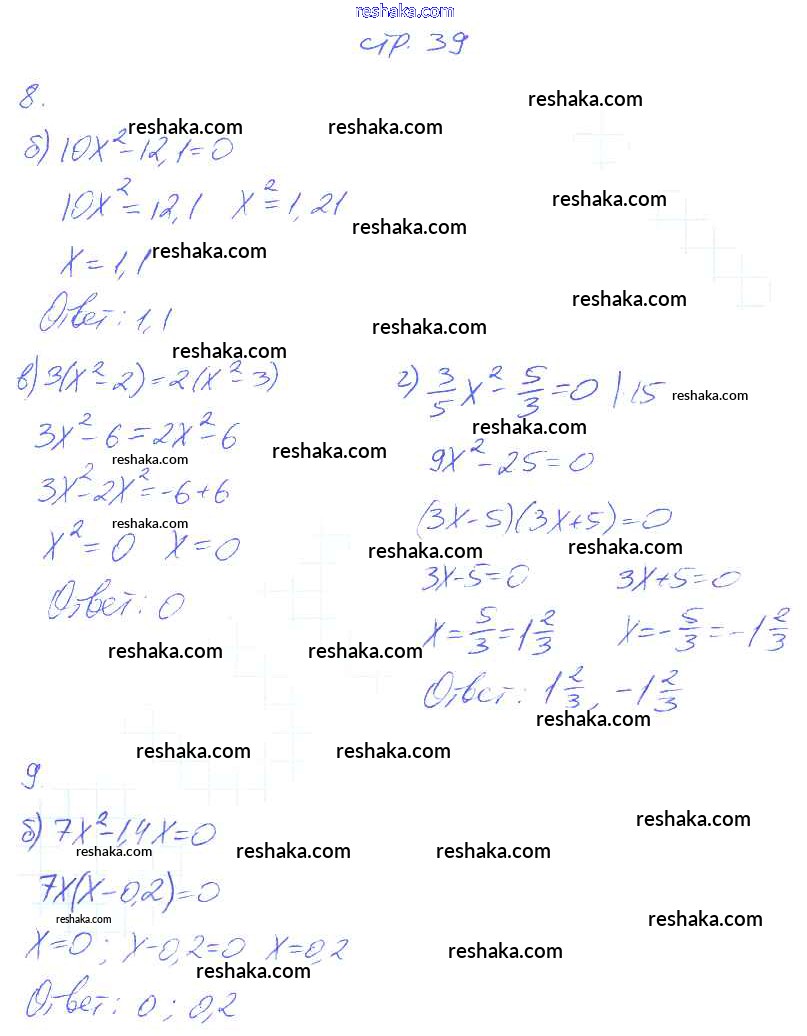 reshaka.com
стр. 39
8.
reshaka.com
б) 10x² - 12,1 = 0
reshaka.com reshaka.com
10x² = 12,1 x² = 1,21
reshaka.com
reshaka.com
x = 1,1
reshaka.com
reshaka.com
Ответ: 1,1
reshaka.com
reshaka.com
в) 3(x² - 2) = 2(x² - 3)
3x² - 6 = 2x² - 6
reshaka.com
reshaka.com
3x² - 2x² = -6 + 6
reshaka.com
x² = 0 x = 0
Ответ: 0
г) 3/5 x² - 5/3 = 0 | 15
reshaka.com
reshaka.com
9x² - 25 = 0
(3x - 5)(3x + 5) = 0
reshaka.com reshaka.com
3x - 5 = 0 3x + 5 = 0
x = 5/3 = 1 2/3 x = - 5/3 = -1 2/3
Ответ: 1 2/3, -1 2/3
reshaka.com
reshaka.com reshaka.com
reshaka.com reshaka.com
9.
reshaka.com
б) 7x² - 1,4x = 0
reshaka.com reshaka.com reshaka.com
7x(x - 0,2) = 0
reshaka.com reshaka.com
x = 0; x - 0,2 = 0 x = 0,2
reshaka.com
reshaka.com
Ответ: 0; 0,2